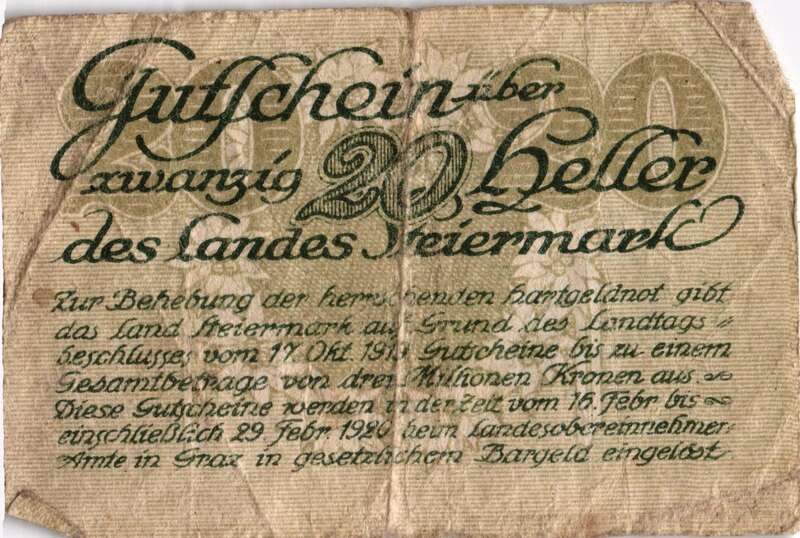 Gutschein über
zwanzig 20 Heller
des Landes Steiermark
Zur Behebung der herrschenden Hartgeldnot gibt
das Land Steiermark auf Grund des Landtags=
beschlusses vom 17. Okt. 1919 Gutscheine bis zu einem
Gesamtbetrage von drei Millionen Kronen aus.
Diese Gutscheine werden in der Zeit vom 16. Febr bis
einschließlich 29. Febr. 1920 beim Landesobereinnehmer=
Amte in Graz in gesetzlichem Bargeld eingelöst.
20 20